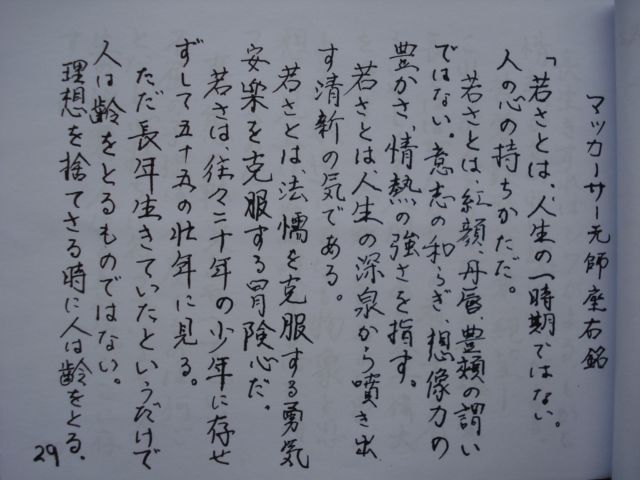 マッカーサー元師座右銘
「若さとは、人生の一時期ではない。
人の心の持ちかただ。
若さとは、紅顔、丹唇、豊頬の謂い
ではない。意志の和らぎ、想像力の
豊かさ、情熱の強さを指す。
若さとは、人生の深泉から噴き出
す清新の気である。
若さとは、法懦を克服する勇気
安楽を克服する冒険心だ。
若さは、往々二十年の少年に存せ
ずして五十五の壮年に見る。
ただ長年生きていたというだけで
人は齢をとるものではない。
理想を捨てさる時に人は齢をとる、
29